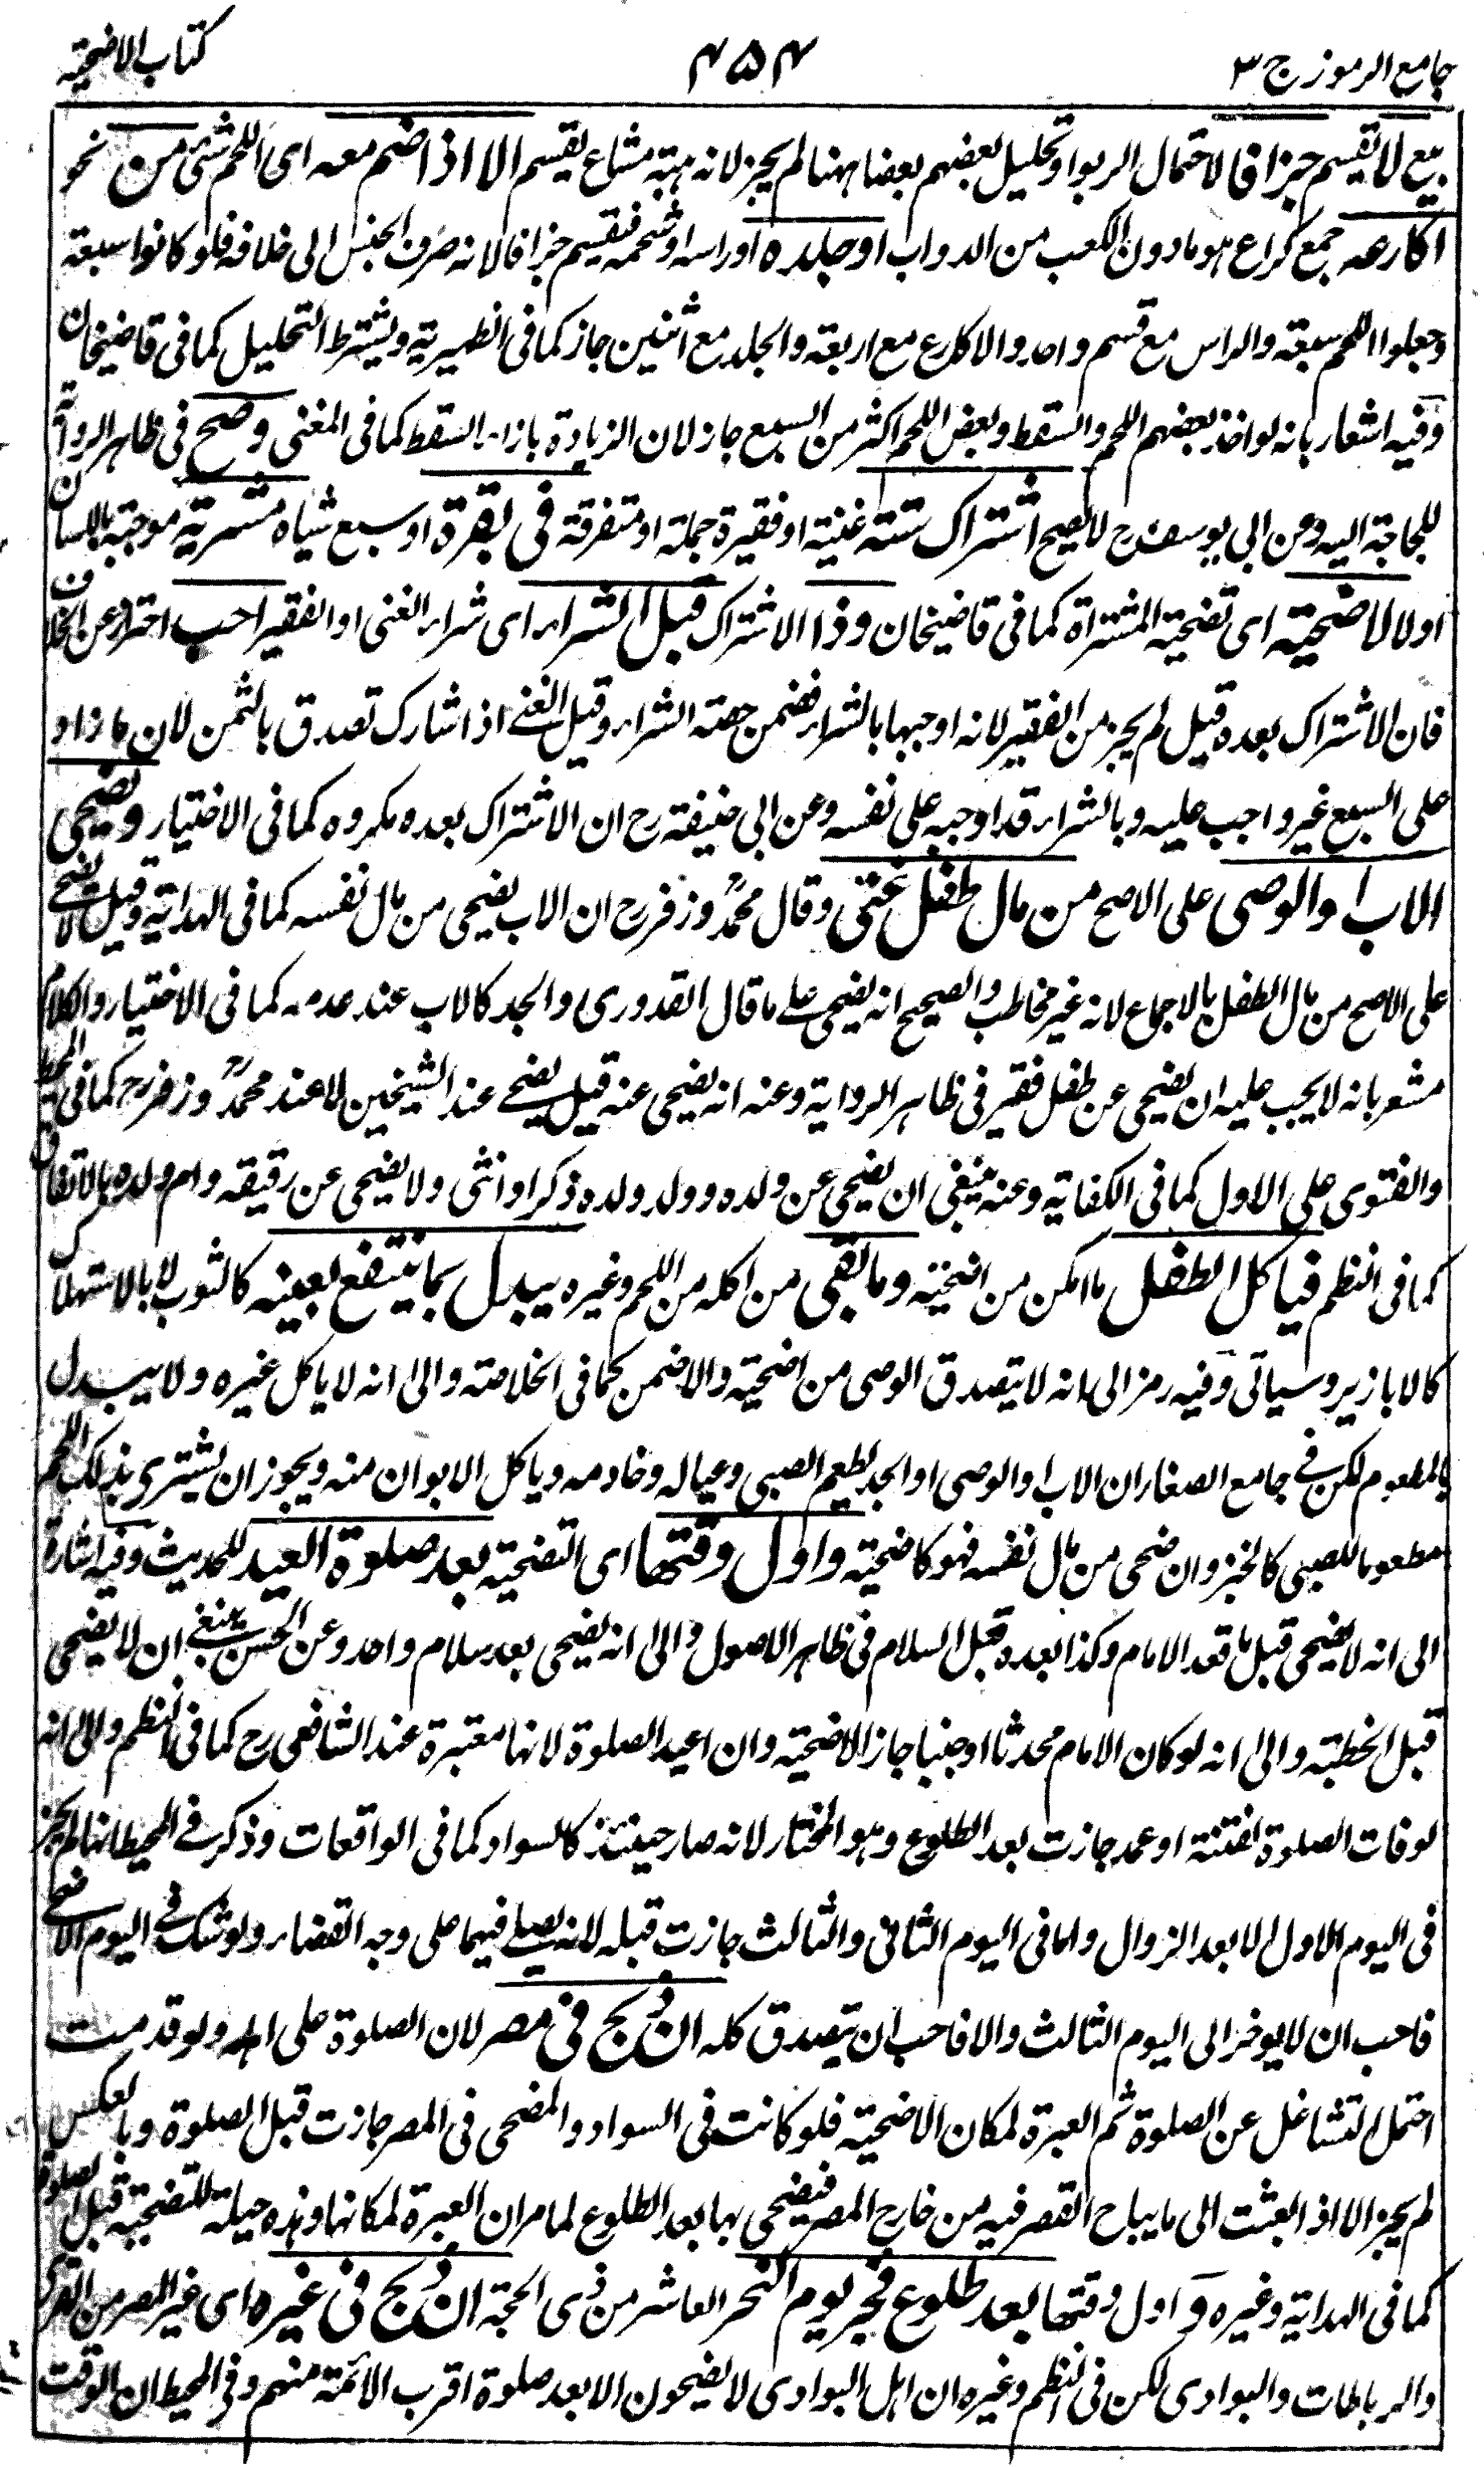 جامع الرموز ج ٣
٤٥٤
كتاب الاضحية
بيع لا تقسيم جزافا لاحتمال الربوا وتحليل بعضهم بعضا ههنا لم يجز لانه هبة مشاع يقسم الا اذا ضم معه اى اللحم شئ من نحو
اكارعه جمع كراع هو ما دون الكعب من الدواب او جلده او راسه او شحمه فتقسيم جزافا لانه صرف الجنس الى خلافه فلو كانوا سبعة
وجعلوا اللحم سبعة والراس مع قسم واحد والاكارع مع اربعة والجلد مع اثنين جاز كما فى الظهيرية ويشترط التحليل كما فى قاضيخان
وفيه اشعار بانه لو اخذ بعضهم اللحم والسقط وبعض اللحم اكثر من السبع جاز لان الزيادة بازاء السقط كما فى المغنى وصح فى ظاهر الرواية
للحاجة اليه وعن ابى يوسف رح لا يصح اشتراك ستة غنية او فقيرة جملة او متفرقة فى بقرة او سبع شياه مشترية موجبة باللسان
اولا لاضحية اى تضحية المشتراة كما فى قاضيخان وذا الاشتراك قبل الشراء اى شراء الغنى او الفقير احب احترازا عن الخلاف
فان الاشتراك بعده قيل لم يجز من الفقير لانه اوجبها بالشراء فضمن حصة الشراء وقيل الغنى اذا شارك تصدق بالثمن لان ما زاد
على السبع غير واجب عليه وبالشراء قد اوجبه على نفسه وعن ابى حنيفة رح ان الاشتراك بعده مكروه كما فى الاختيار ويضحى
الاب او الوصى على الاصح من مال طفل غنى وقال محمد وزفر رح ان الاب يضحى من مال نفسه كما فى الهداية وقيل لا يضحى
على الاصح من مال الطفل بالاجماع لانه غير مخاطب والصحيح انه يضحى على ما قال القدورى والجد كالاب عند عدمه كما فى الاختيار والكلام
مشعر بانه لا يجب عليه ان يضحى عن طفل فقير فى ظاهر الرواية وعنه انه يضحى عنه قيل يضحى عند الشيخين لا عند محمد وزفر رح كما فى المحيط
والفتوى على الاول كما فى الكفاية وعنه ينبغى ان يضحى عن ولده وولد ولده ذكرا او انثى ولا يضحى عن رقيقه وام ولده بالاتفاق
كما فى النظم فياكل الطفل ما امكن من اضحيته وما بقى من اكله من اللحم وغيره يبدل بما ينتفع بعينه كالثوب لا بالاستهلاك
كالابازير وسياتى وفيه رمز الى انه لا يتصدق الوصى من اضحيته والا ضمن كما فى الخلاصة والى انه لا ياكل غيره ولا يبدل
بالمطعوم لكن فى جامع الصغار ان الاب او الوصى او الجد يطعم الصبى وعياله وخادمه وياكل الابوان منه ويجوز ان يشترى بذلك اللحم
مطعوما للصبى كالخبز وان ضحى من مال نفسه فهو كاضحيته واول وقتها اى التضحية بعد صلوة العيد للحديث وفيه اشارة
الى انه لا يضحى قبل ما قعد الامام وكذا بعده قبل السلام فى ظاهر الاصول والى انه يضحى بعد سلام واحد وعن الحسن ينبغى ان لا يضحى
قبل الخطبة والى انه لو كان الامام محدثا او جنبا جاز الاضحية وان اعيد الصلوة لانها معتبرة عند الشافعى رح كما فى النظم والى انه
لو فات الصلوة لفتنة او عمد جازت بعد الطلوع وهو المختار لانه صار حينئذ كالسواد كما فى الواقعات وذكر فى المحيط انها لم يجز
فى اليوم الاول الا بعد الزوال واما فى اليوم الثانى والثالث جازت قبله لانه يصلى فيهما على وجه القضاء ولو شك فى اليوم الاضحى
فاحب ان لا يوخر الى اليوم الثالث والا فاحب ان يتصدق كله ان ذبح فى مصر لان الصلوة على اهله ولو قدمت
احتمل التشاغل عن الصلوة ثم العبرة لمكان الاضحية فلو كانت فى السواد والمضحى فى المصر جازت قبل الصلوة وبالعكس
لم يجز الا اذا بعثت الى ما يباح القصر فيه من خارج المصر فيضحى بها بعد الطلوع لما مر ان العبرة لمكانها وهذه حيلة للتضحية قبل الصلوة
كما فى الهداية وغيره و اول وقتها بعد طلوع فجر يوم النحر العاشر من ذى الحجة ان ذبح فى غيره اى غير المصر من القرى
والرباطات والبوادى لكن فى النظم وغيره ان اهل البوادى لا يضحون الا بعد صلوة اقرب الائمة منهم وفى المحيط ان الوقت